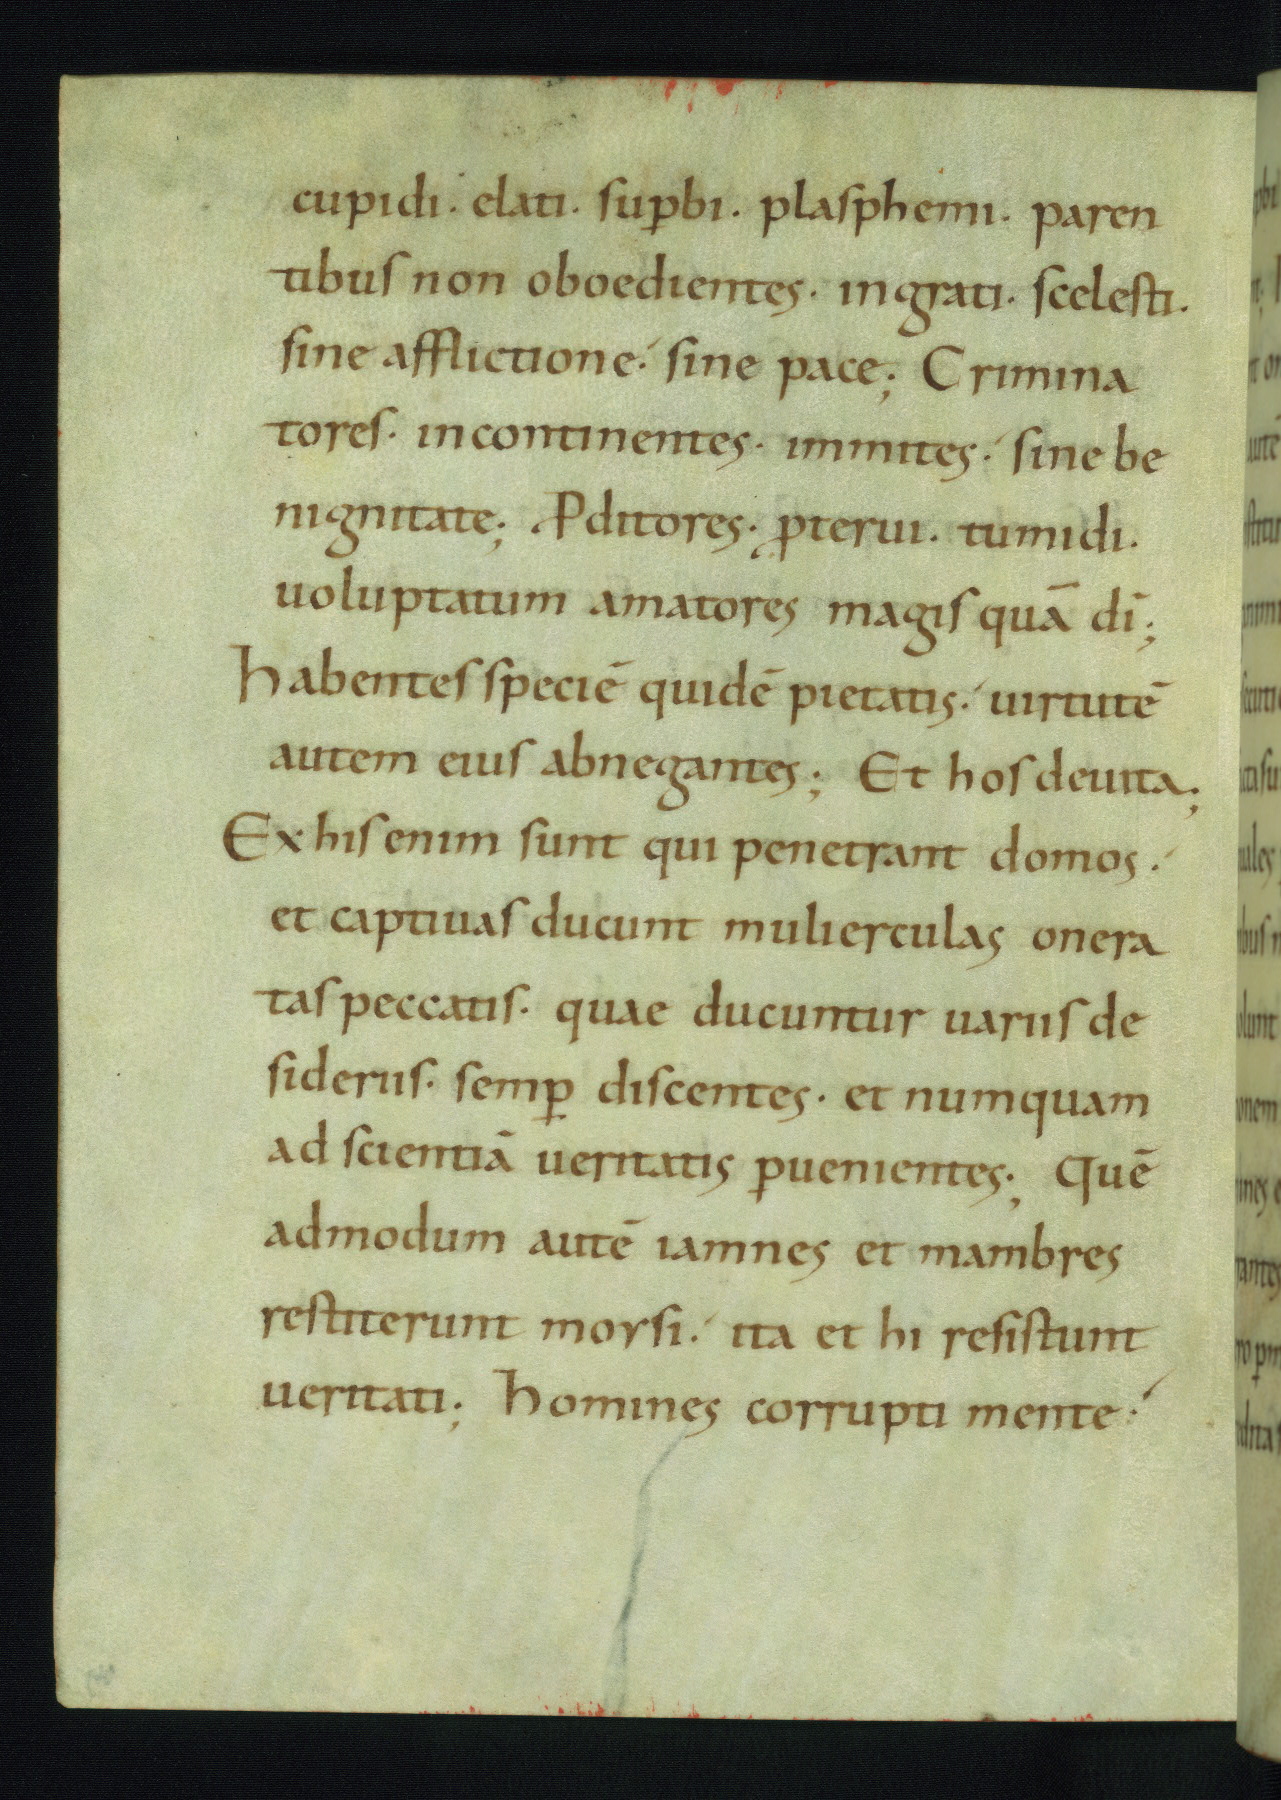 cupidi· elati· suꝑbi· plasphemi· paren
tibus non oboedientes· ingrati· scelesti·
sine afflictione· sine pace; Crimina
tores· incontinentes· inmites· sine be
nignitate; Ꝑditores· ꝓterui· tumidi·
uoluptatum amatores magis quā dī;
habentes speciē quidē pietatis· uirtutē
autem eius abnegantes; Et hos deuita;
Ex his enim sunt qui penetrant domos·
et captiuas ducunt mulierculas onera
tas peccatis· quae ducuntur uariis de
sideriis· semꝑ discentes· et numquam
ad scientiā ueritatis ꝑuenientes; Quē
admodum autē iamnes et mambres
restiterunt morsi· ita et hi resistunt
ueritati; homines corrupti mente·